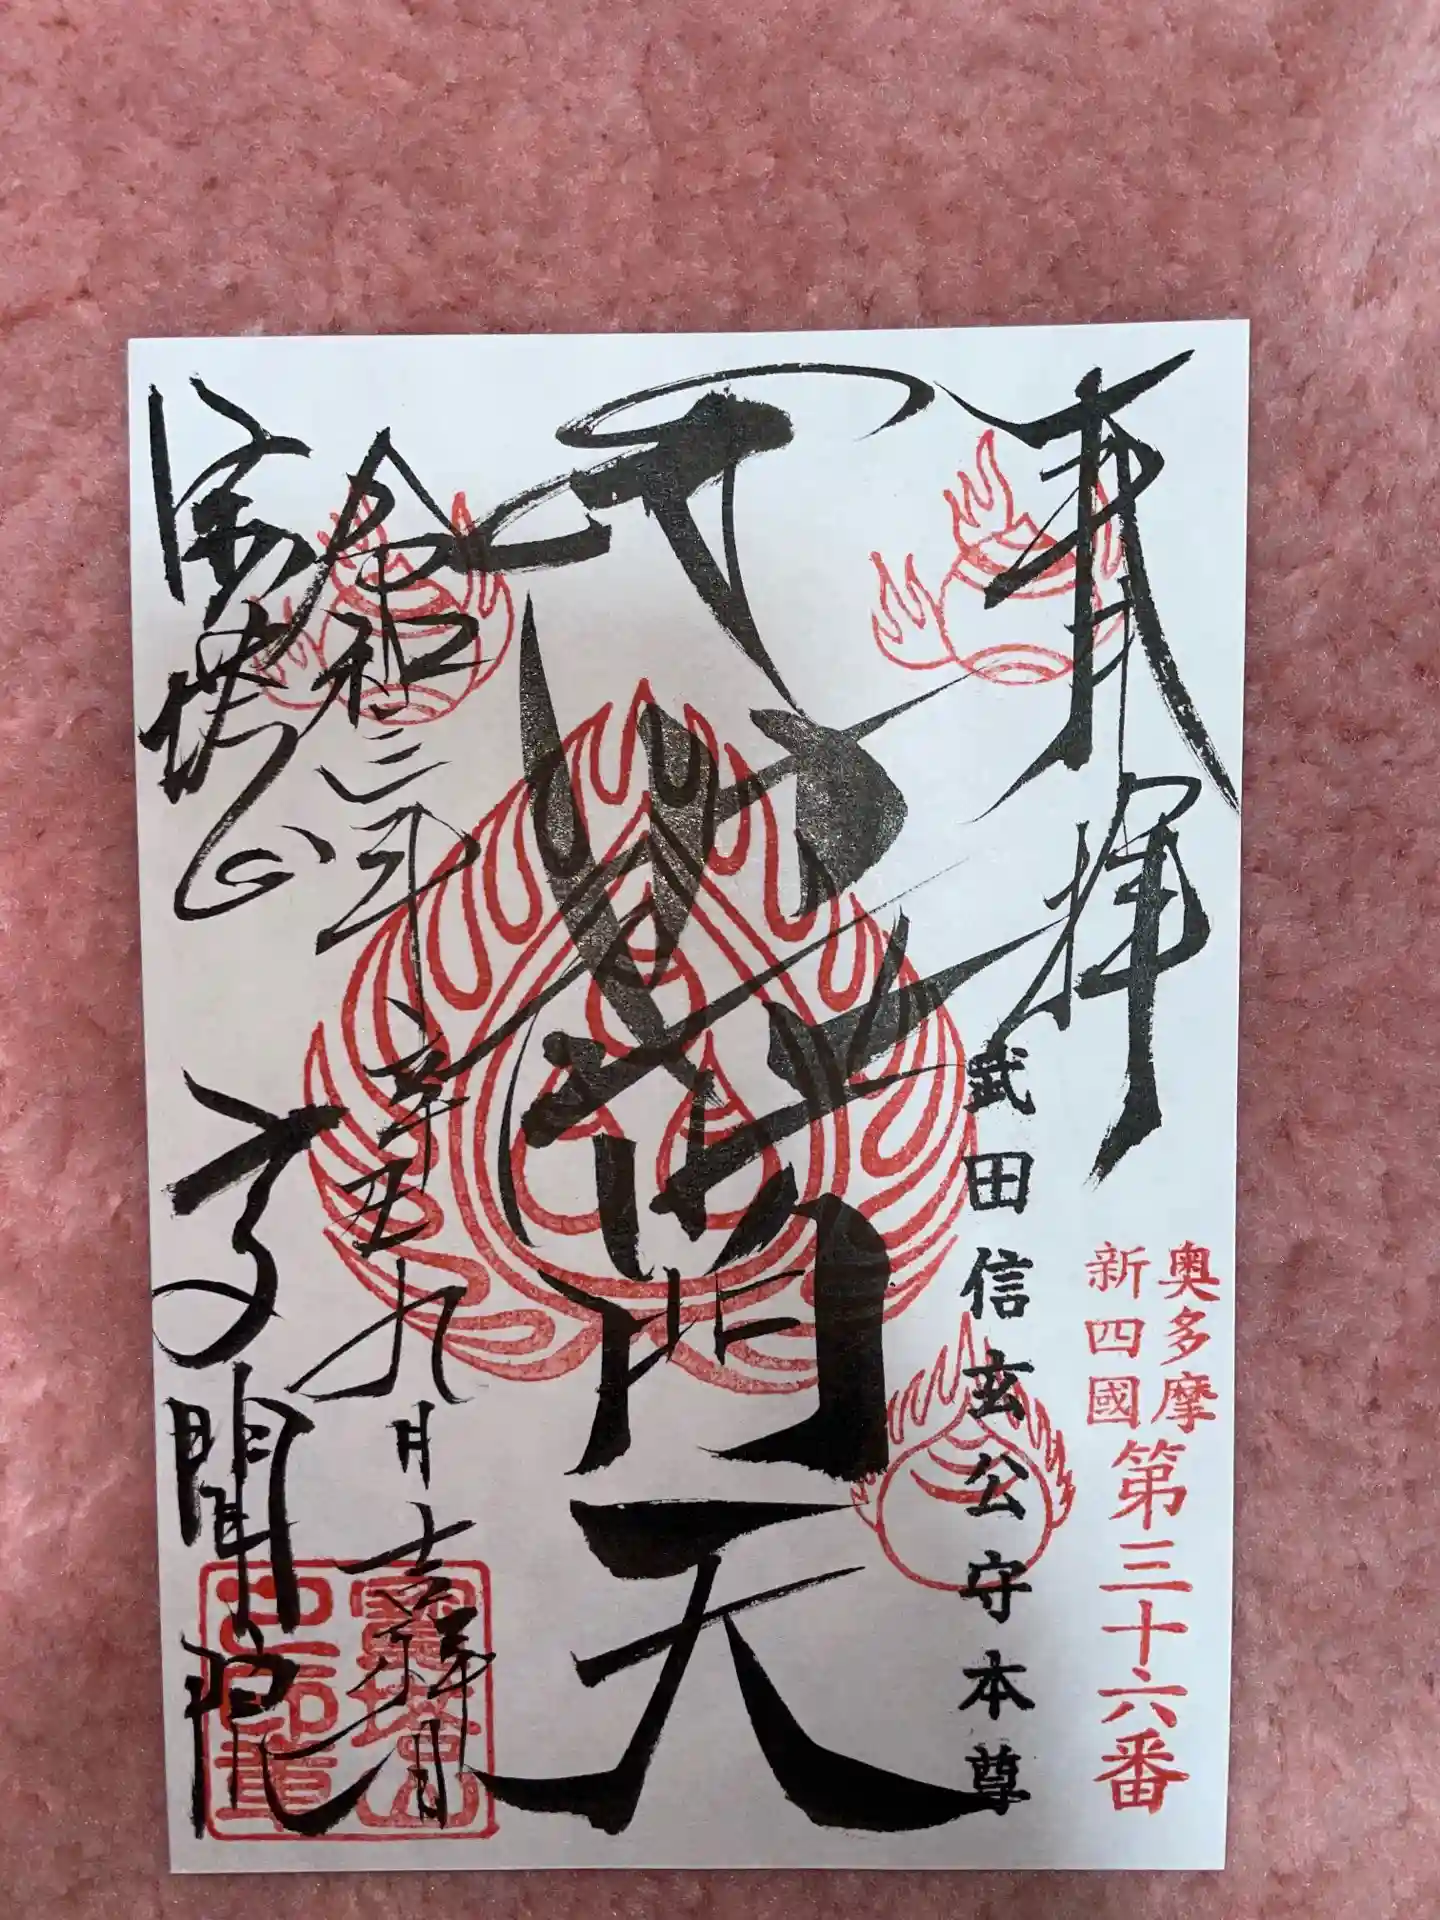 奉拝
奥多摩
新四國
第三十六番
武田信玄公守本尊
毘沙門天
令和三年 辛丑九月吉祥日
多聞院